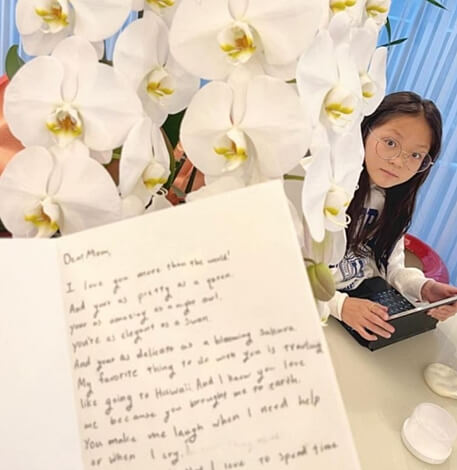 Dear Mom,
I love you more than the world!
And your as pretty as a queen.
your as amazing as a night owl.
you're as elegant as a swan.
And your as delicate as a blooming Sakura.
My favorite thing to do with you is traveling
like going to Hawaii. And I know you love
me because you brought me to earth.
You make me laugh when I need help
or when I cry.
I love to spend time